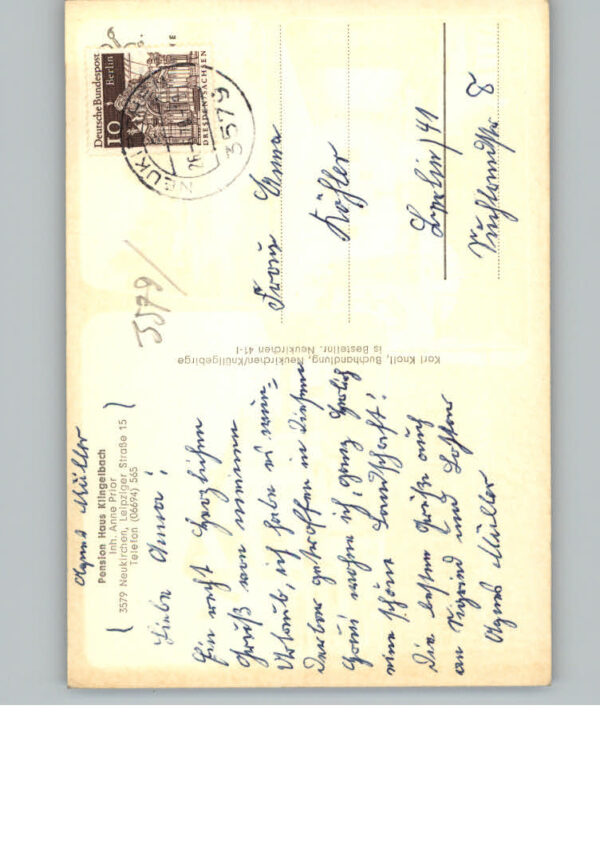 Agnes Müller
Pension Haus Klingelbach
Inh. Anne Prior
3579 Neukirchen, Leipziger Straße 15
Telefon (06694) 565
Liebe Anna!
Ein recht herzlichen
Gruß von meinem
Urlaub, ich habe es wun-
derbar getroffen in diesem
Haus wohne ich, ganz herrlich
eine schöne Landschaft!
Die besten Grüße auch
an Sigrid und
Agnes Müller
Karl Knoll, Buchhandlung, Neukirchen/Knüllgebirge
is Bestellnr. Neukirchen 41-1
3579/
Deutsche Bundespost
Berlin
10
DRESDEN/SACHSEN
3579
Frau Anna
Köhler
Berlin 41
8